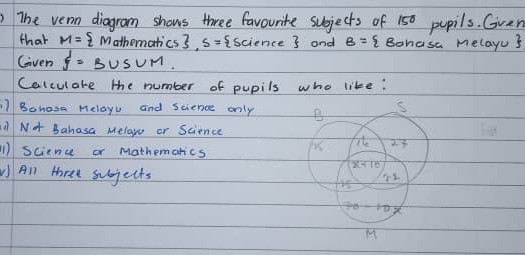 The venn diagram shows three favourite subjects of 150 pupils. Given
that M = { Mathematics }, S = { Science } and B = { Bahasa Melayu }
Given ξ = B U S U M.
Calculate the number of pupils who like :
i) Bahasa Melayu and Science only
ii) Not Bahasa Melayu or Science
iii) Science or Mathematics
iv) All three subjects
B
S
16
27
x+10
22
M